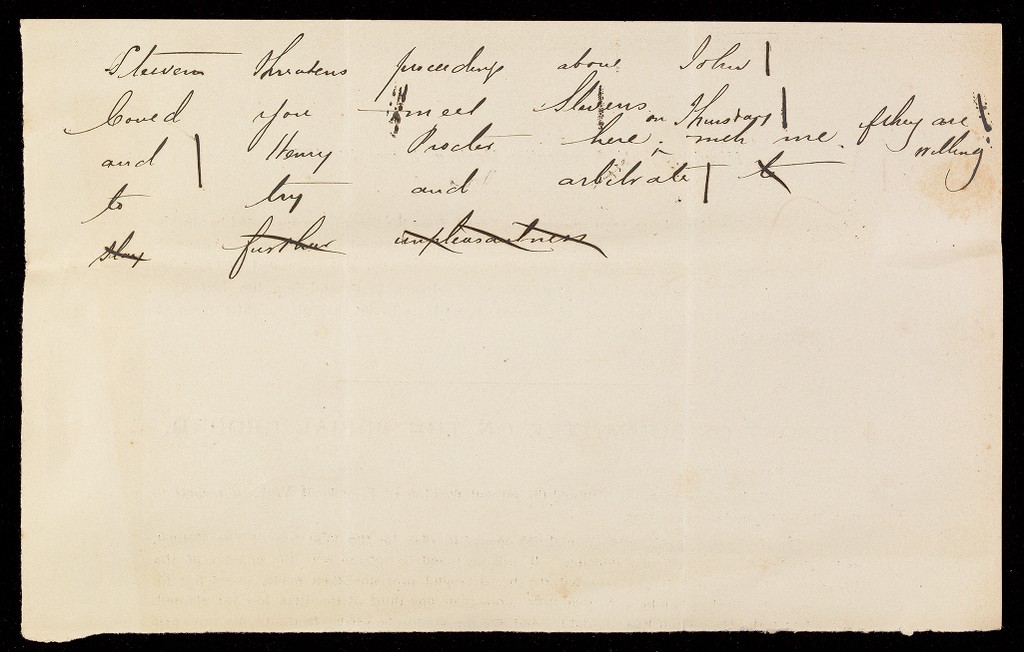 Stevens threatens proceedings about John |
Coued you meet Stevens on Thursday | if they are |
and | Henry Procter here with me. willing
to try and arbitrate | to
stay further unpleasantness